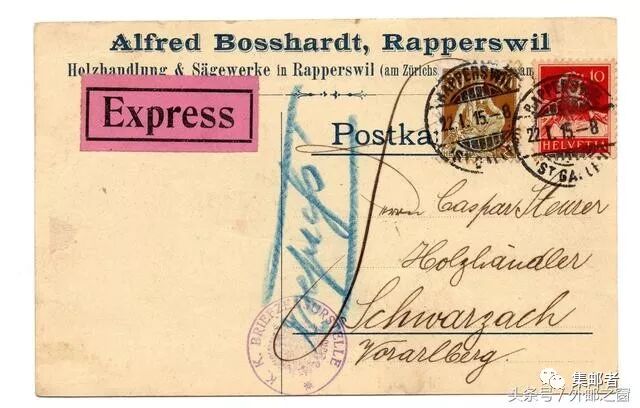 Alfred Bosshardt, Rapperswil
Holzhandlung & Sägewerke in Rapperswil (am Zürichs
Express
Postka
RAPPERSWIL
22.I.15.-8
ST. GALLEN
RAPPERSWIL
22.I.15.-8
ST. GALLEN
10
HELVETIA
Herrn Caspar Steurer
Holzhändler
Schwarzach
Vorarlberg.
Express
K. K. BRIEFZENSURSTELLE
集邮者
头条号/外邮之窗